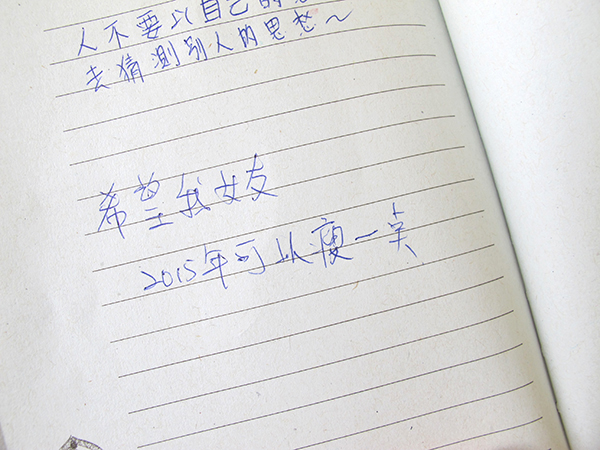 人不要以自己的
去猜測別人的思想~
希望我女友
2015年可以瘦一点